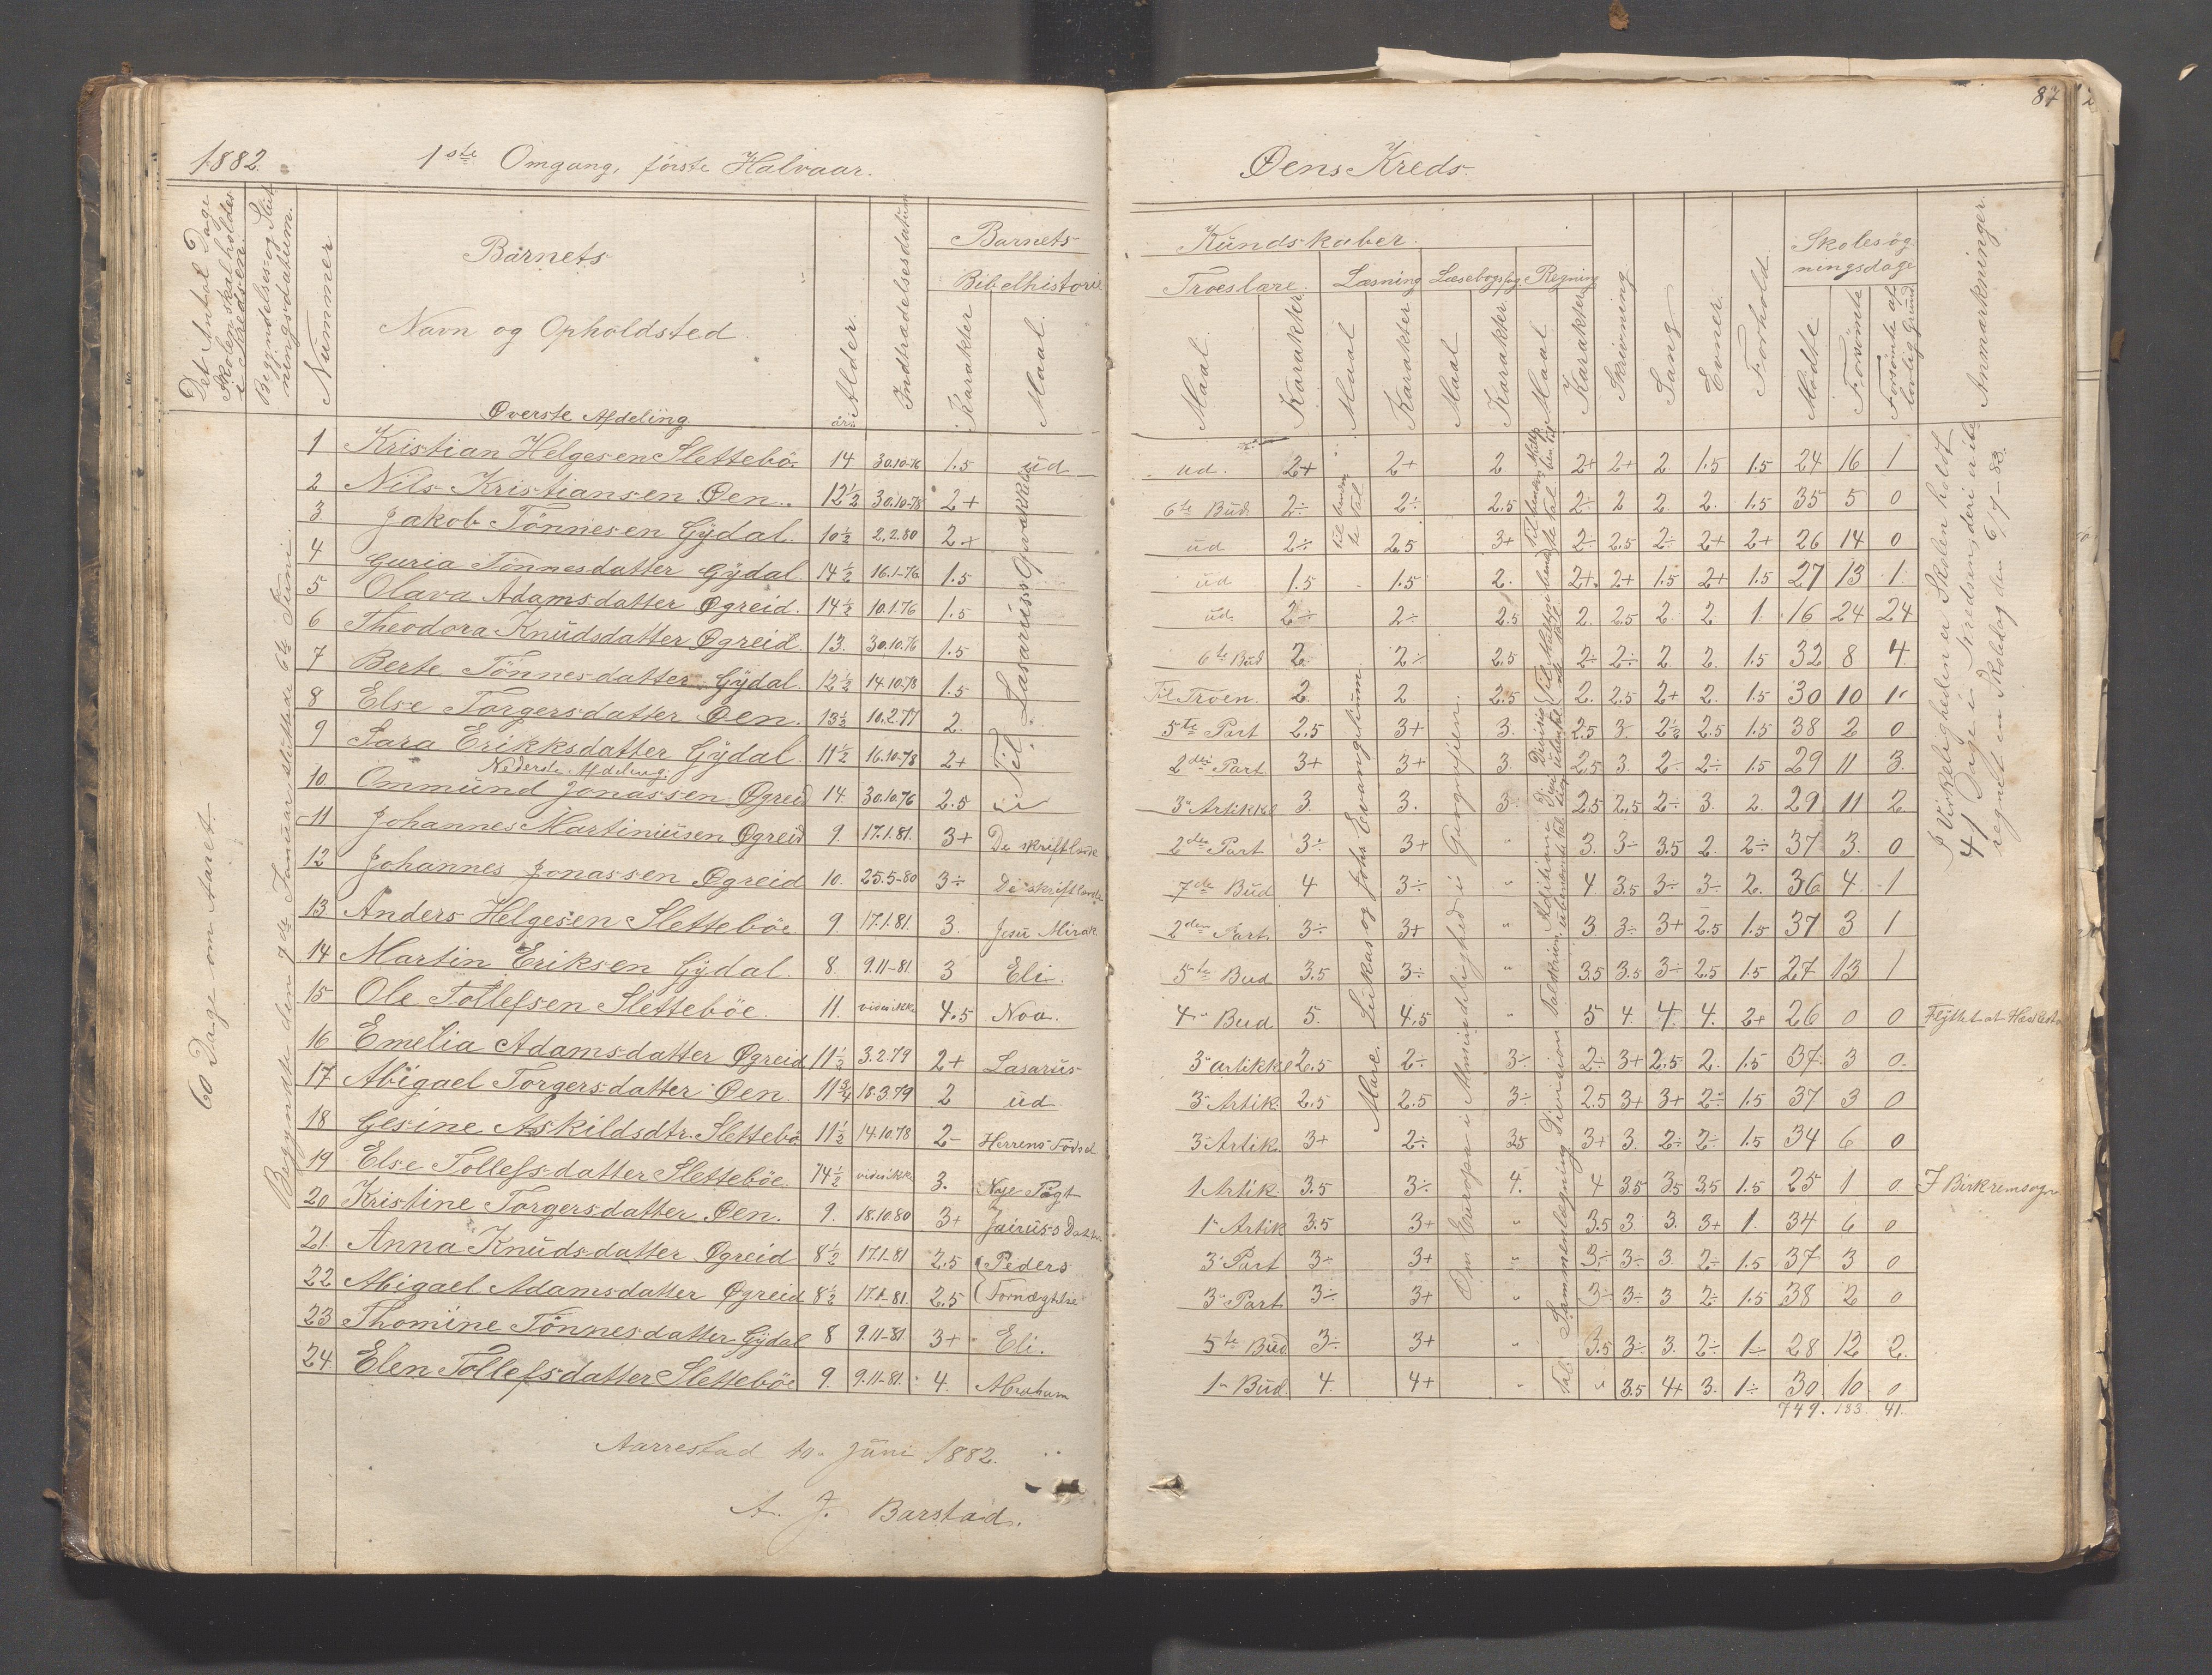 1882.
1ste Omgang, første Halvaar.
Det Antal Dage
Skolen skal holdes
i Kredsen.
Begyndelses- og Slut-
ningsdatum.
Nummer
Barnets
Navn og Opholdsted.
Øverste Afdeling.
Alder.
år.
Indtrædelsesdatum
Barnets
Bibelhistorie
Karakter
Maal.
60 Dage om Aaret.
Begyndte den 7de Januar sluttede 6te Juni.
1 Kristian Helgesen Slettebö. 14 30.10-76 1.5 üd
2 Nils Kristiansen Øen. 12½ 30.10-78 2+
3 Jakob Tönnesen Gÿdal. 10½ 2.2.80 2+
4 Guria Tönnesdatter Gÿdal. 14½ 16.1-76 1.5
5 Olava Adamsdatter Øgreid. 14½ 10.1.76 1.5
6 Theodora Knüdsdatter Øgreid. 13. 30.10.76 1.5
7 Berte Tönnesdatter Gÿdal. 12½ 14.10.78 1.5
8 Else Torgersdatter Øen. 13½ 10.2.77 2.
9 Sara Erikksdatter Gÿdal. 11½ 16.10-78 2+
Til Lasarüss Opvækkelse
Nederste Afdeling.
10 Ommünd Jonassen Øgreid 14. 30.10.76 2.5
11 Johannes Martiniüsen Øgreid 9. 17.1.81. 3+ De skriftlærde
12 Johannes Jonassen Øgreid 10. 25.5-80 3÷ De skriftlærde
13 Anders Helgesen Sletteböe 9. 17.1.81. 3. Jesü Mirak
14 Martin Eriksen Gÿdal. 8. 9.11-81. 3 Eli.
15 Ole Tollefsen Sletteböe. 11. vides ikke 4.5 Noa.
16 Emelia Adamsdatter Øgreid 11½ 3.2.79 2+ Lasarüs
17 Abigael Torgersdatter Øen. 11¾ 18.3.79 2 üd
18 Gesine Askildsdtr. Slettebö 11½ 14.10.78 2- Herrens Födsel
19 Else Tollefsdatter Sletteböe. 14½ vides ikke 3. Nye Pagt
20 Kristine Torgersdatter Øen. 9. 18.10.80 3+ Jairüss Datter
21. Anna Knüdsdatter Øgreid 8½ 17.1-81 2.5 Peders
22 Abigael Adamsdatter Øgreid 8½ 17.1-81. 2.5 Fornægtelse
23 Thomine Tönnesdatter Gÿdal 8 9.11-81. 3+ Eli.
24. Elen Tollefsdatter Sletteböe 9. 9.11-81. 4. Abraham
Aarrestad 10. Jüni 1882.
A. J. Barstad.
87
Øens Kreds.
Kündskaber.
Troeslære.
Læsning
Læsebogsfag.
Regning
Maal.
Karakter.
Maal
Karakter
Maal
Karakter.
Maal.
Karakter
Skrivning
Sang
Evner.
Forhold
Skolesög-
ningsdage
Mödte
Forsömte
Forsömte af
lovlig Grund
Anmærkninger.
ud. 2+ 2+ 2 2+ 2+ 2 1.5 1.5 24 16 1
6te Bud. 2÷ 2÷ 2.5 2÷ 2 2. 2. 1.5 35 5 0
üd 2÷ 2.5 3+ 2÷ 2.5 2÷ 2+ 2+ 26 14 0
üd 1.5 1.5 2. 2+. 2+ 1.5 2+ 1.5 27 13 1.
üd. 2÷ 2÷ 2.5 2. 2.5 2. 2 1. 16 24 24
6te Büd 2. 2÷ 2.5 2÷ 2÷ 2 2. 1.5 32 8 4.
Til Troen. 2. 2. 2.5 2. 2.5 2+ 2. 1.5 30 10 1.
5te Part 2.5 3+ 3. 2.5 3. 2½ 2.5 1.5 38 2 0
2den Part 3+ 3+ 3. 2.5 3. 2÷ 2÷ 1.5 29 11 3.
3" Artikkel 3. 3. 3 2.5 2.5 2÷ 3. 2. 29 11 2.
2den Part 3÷ 3+ " 3. 3÷ 3.5 2. 2÷ 37 3. 0
7de Büd 4 3÷ " 4. 3.5 3÷ 3÷ 2. 36 4. 1
2den Part. 3÷ 3+ " 3 3÷ 3+ 2.5 1.5 37 3 1
5te Bud 3.5 3÷ " 3.5 3.5 3÷ 2.5 1.5 27 13 1
4" Bud 5. 4.5 5 4. 4. 4. 2+ 26 0 0
3" artikkel 2.5 2÷ 3÷ 2÷ 3+ 2.5 2. 1.5 37. 3 0.
3" Artik. 2.5 2.5 3÷ 2.5 3+ 3+ 2÷ 1.5 37 3 0
3" Artik. 3+ 2÷ 3.5 3+ 3. 2÷ 2÷ 1.5 34 6 0
1 Artik. 3.5 3÷ 4. 4 3.5 3.5 3.5 1.5 25 1 0 I Birkremsogn
1" Artik 3.5 3+ " 3.5 3. 3. 3+ 1. 34 6 0
3" Part 3÷ 3+ " 3÷ 3÷ 3. 2÷ 1.5 37 3 0
3" Part 3÷ 3+ " 3÷ 3÷ 3 2÷ 1.5 38 2 0
5te Büd 3÷ 3+ " 3.5 3÷ 3. 2÷ 1÷ 28 12 2.
1" Büd 4. 4+ " " 3.5 4+ 3. 1÷ 30. 10. 0
749. 183. 41.
Lükas og Johs Evangeliüm.
Marc.
Om Europa i Almindelighed i Geografien.
I Virkeligheden er Skolen holdt
41 Dage i Kredsen, deri ikke
regnet en Skoledag den 6/7-83.